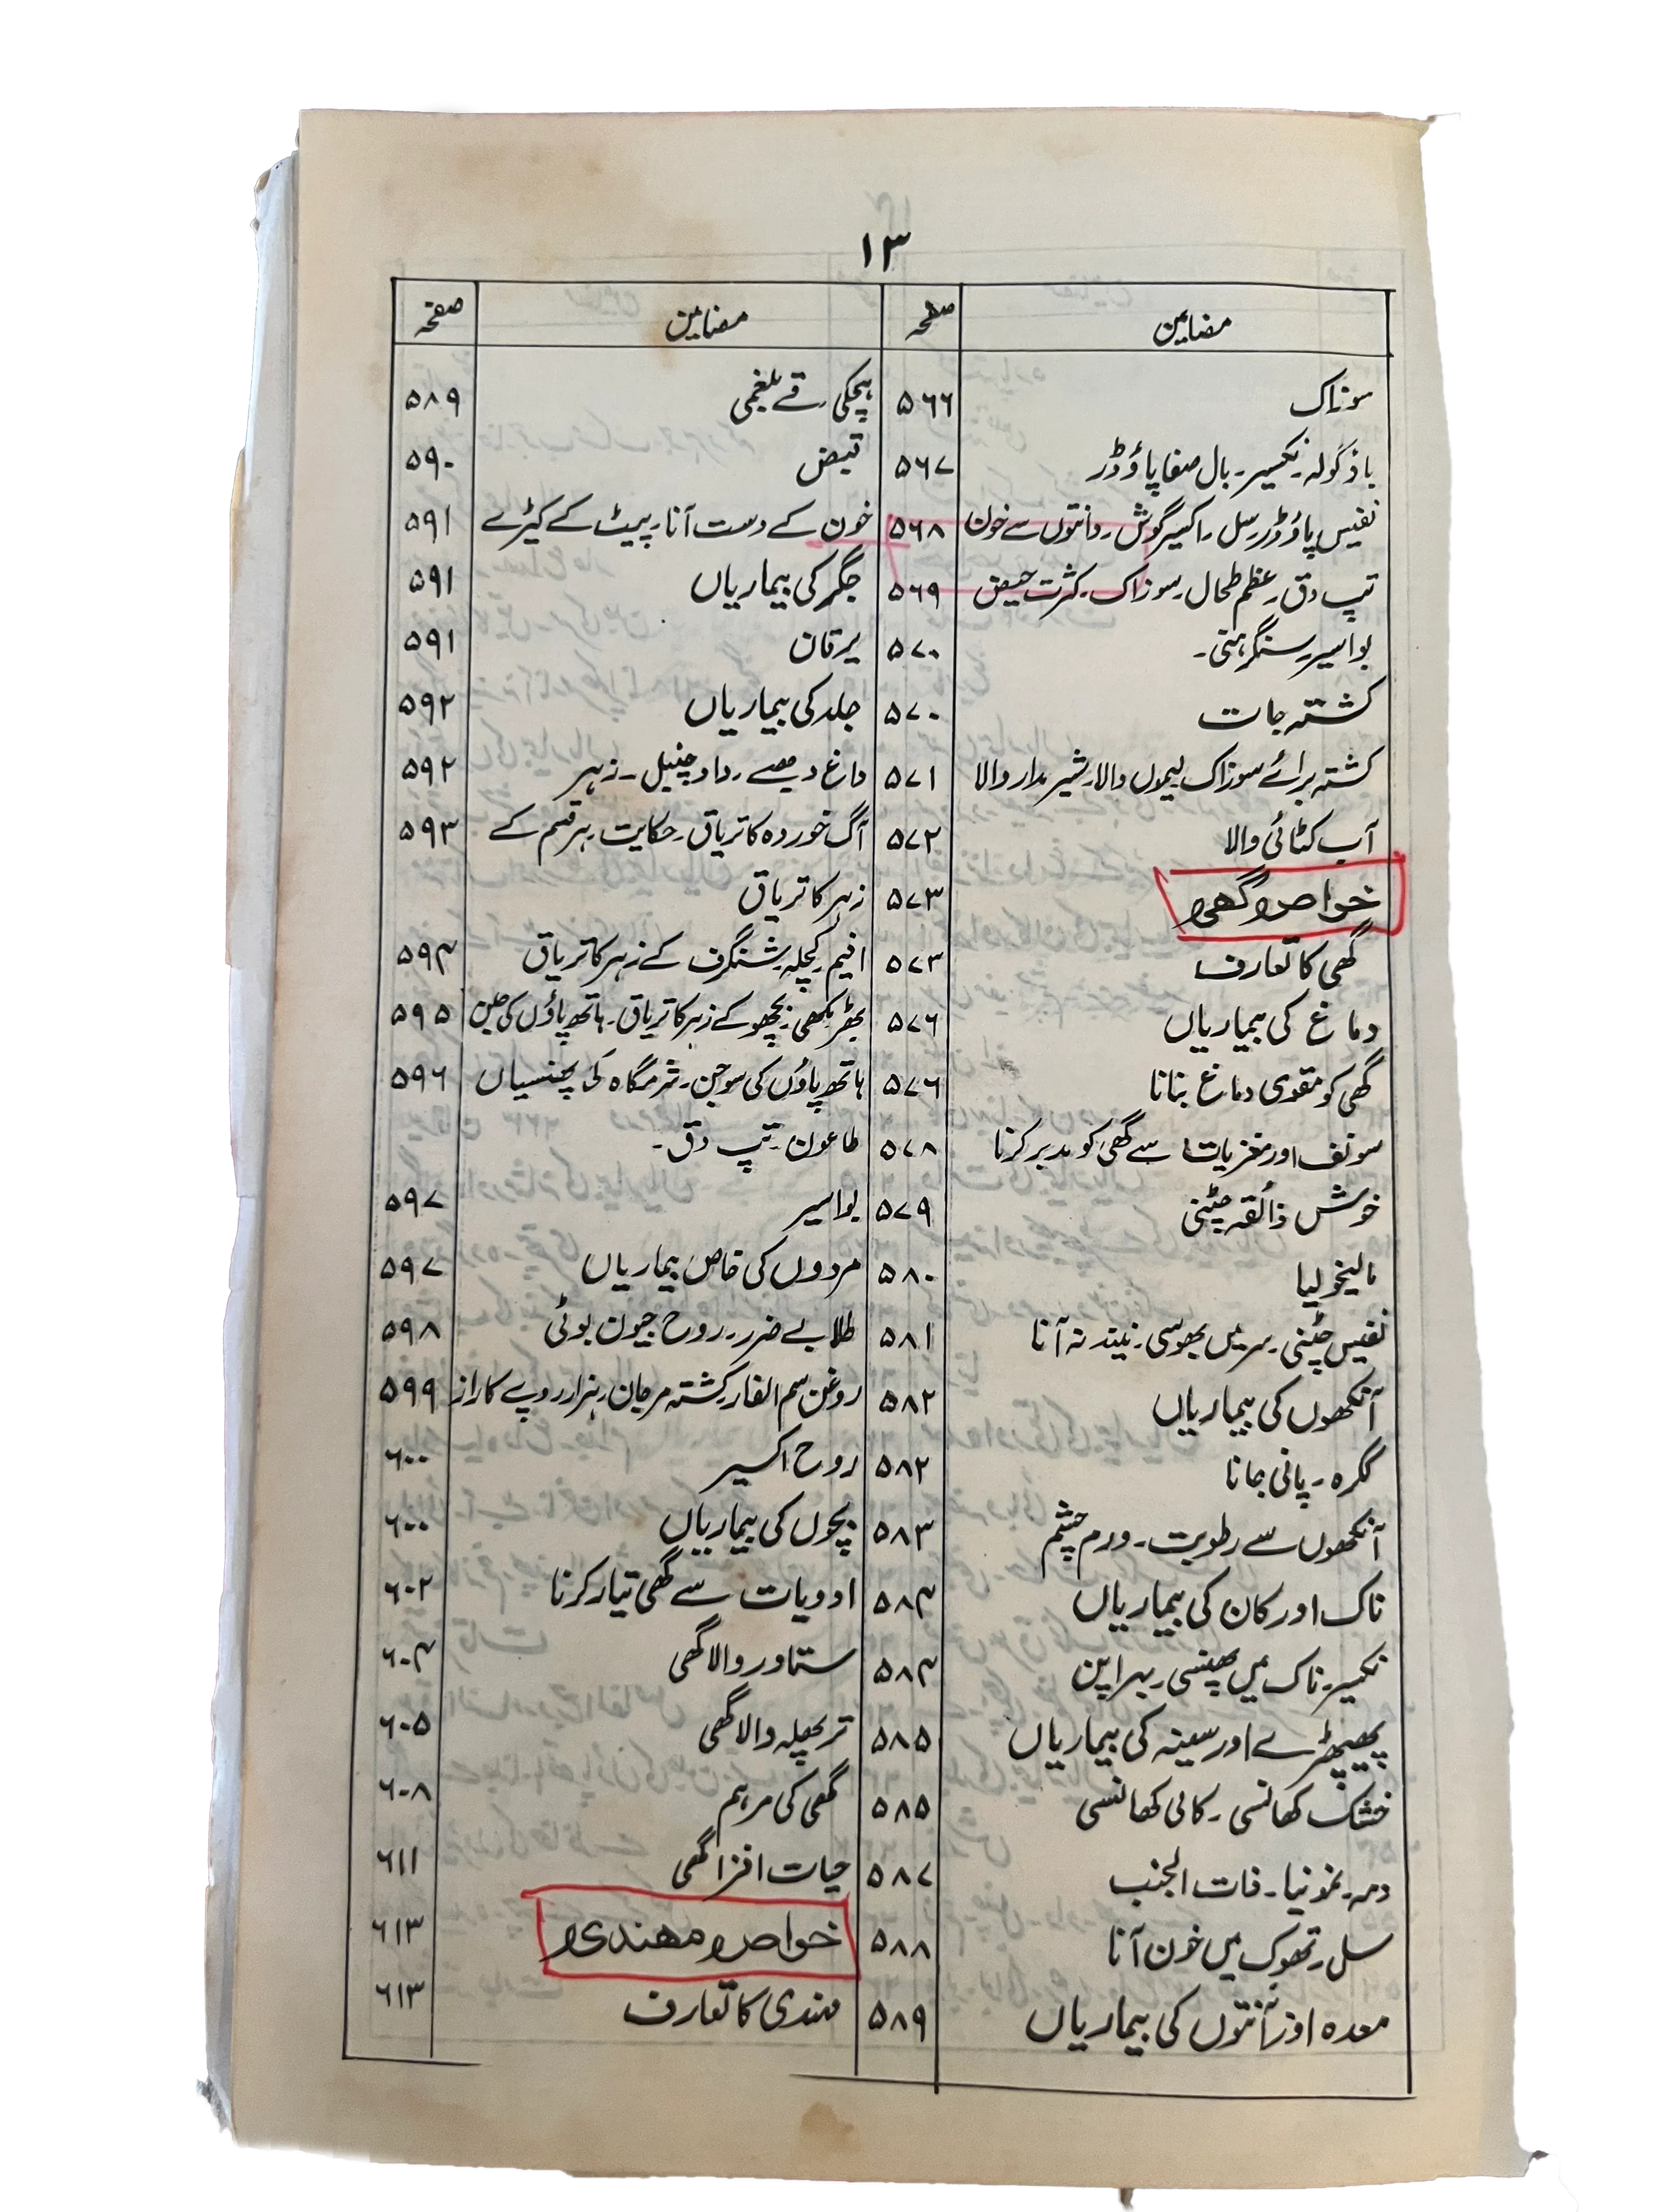 ۱۳
مضامین
صفحہ
سوزاک ۵۶۶
باؤ گولہ۔ نکسیر۔ بال صفا پاؤڈر ۵۶۷
نفیس پاؤڈر۔ سل۔ اکسیر گوش۔ دانتوں سے خون ۵۶۸
تپ دق۔ عظم طحال۔ سوزاک۔ کثرت حیض ۵۶۹
بواسیر۔ سنگرہنی۔ ۵۷۰
کشتہ جات ۵۷۰
کشتہ برائے سوزاک لیموں والا۔ شیر مدار والا ۵۷۱
آب کٹائی والا ۵۷۲
خواص گھی ۵۷۳
گھی کا تعارف ۵۷۳
دماغ کی بیماریاں ۵۷۶
گھی کو مقوی دماغ بنانا ۵۷۶
سونف اور مغزیات سے گھی کو مدبر کرنا ۵۷۸
خوش ذائقہ چٹنی ۵۷۹
مالیخولیا ۵۸۰
نفیس چٹنی۔ سر میں بھوسی۔ نیند نہ آنا ۵۸۱
آنکھوں کی بیماریاں ۵۸۲
ککرہ۔ پانی جانا ۵۸۲
آنکھوں سے رطوبت۔ ورم چشم ۵۸۳
ناک اور کان کی بیماریاں ۵۸۴
نکسیر۔ ناک میں پھنسی۔ بہراپن ۵۸۴
پھیپھڑے اور سینہ کی بیماریاں ۵۸۵
خشک کھانسی۔ کالی کھانسی ۵۸۵
دمہ۔ نمونیا۔ ذات الجنب ۵۸۷
سل۔ تھوک میں خون آنا ۵۸۸
معدہ اور آنتوں کی بیماریاں ۵۸۹
مضامین
صفحہ
ہچکی۔ قے بلغمی ۵۸۹
قبض ۵۹۰
خون کے دست آنا۔ پیٹ کے کیڑے ۵۹۱
جگر کی بیماریاں ۵۹۱
یرقان ۵۹۱
جلد کی بیماریاں ۵۹۲
داغ دھبے۔ داد چنبل۔ زہر ۵۹۲
آگ خوردہ کا تریاق۔ حکایت۔ ہر قسم کے ۵۹۳
زہر کا تریاق
افیم۔ کچلہ۔ شنگرف کے زہر کا تریاق ۵۹۴
بھڑ۔ مکھی۔ بچھو کے زہر کا تریاق۔ ہاتھ پاؤں کی جلن ۵۹۵
ہاتھ پاؤں کی سوجن۔ شرمگاہ کی پھنسیاں ۵۹۶
طاعون۔ تپ دق۔
بواسیر ۵۹۷
مردوں کی خاص بیماریاں ۵۹۷
طلا بے ضرر۔ روح جیون بوٹی ۵۹۸
روغن سم الفار۔ کشتہ مرجان۔ ہزار روپے کا راز ۵۹۹
روح اکسیر ۶۰۰
بچوں کی بیماریاں ۶۰۰
ادویات سے گھی تیار کرنا ۶۰۲
ستاور والا گھی ۶۰۴
تربھلہ والا گھی ۶۰۵
گھی کی مرہم ۶۰۸
حیات افزا گھی ۶۱۱
خواص مہندی ۶۱۳
مہندی کا تعارف ۶۱۳